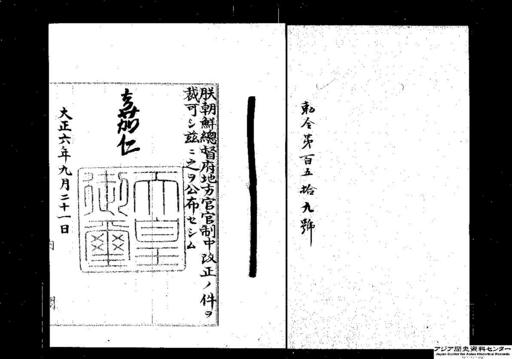 勅令第百五拾九號
朕朝鮮總督府地方官官制中改正ノ件ヲ
裁可シ玆ニ之ヲ公布セシム
嘉仁
天皇
御璽
大正六年九月二十一日
アジア歴史資料センター
Japan Center for Asian Historical Records